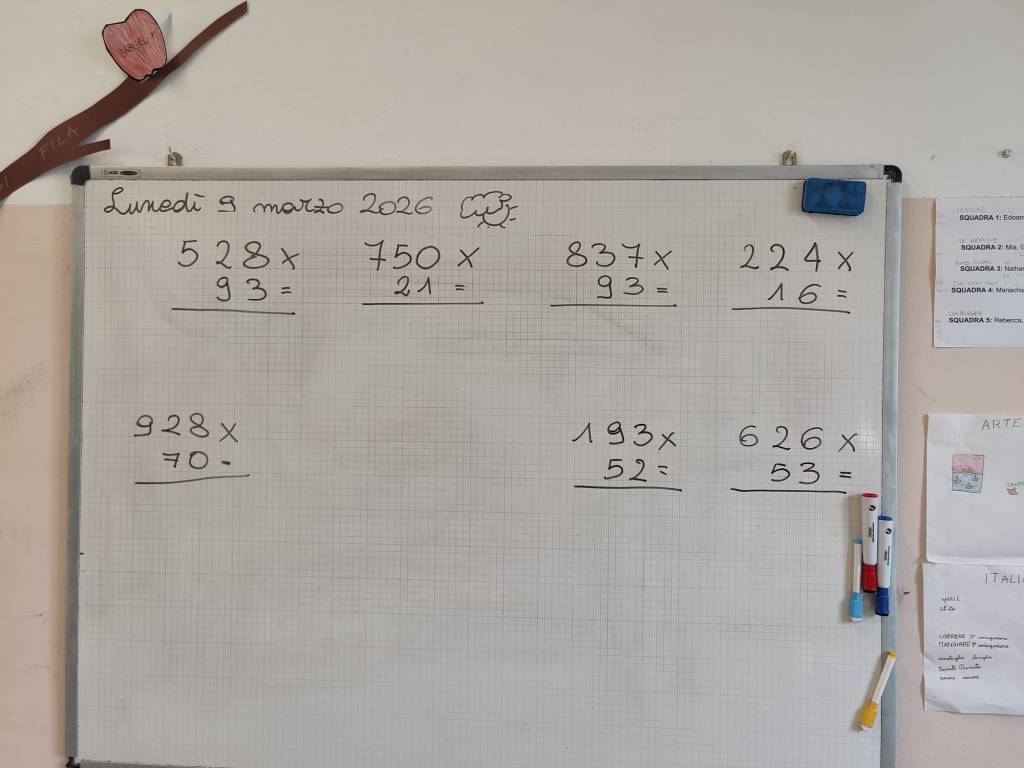 FILA
Lunedì 9 marzo 2026
528x
93=
750 x
21 =
837x
93=
224 x
16=
928x
70-
193x
52=
626 x
53 =
SQUADRA 1: Edoar
SQUADRA 2: Mia, G
SQUADRA 3: Natha
SQUADRA 4: Marischi
SQUADRA 5: Rebecca,
ARTE
ITALIA
CORRERE 2ª coniugazione
MANGIARE 1ª coniugazione